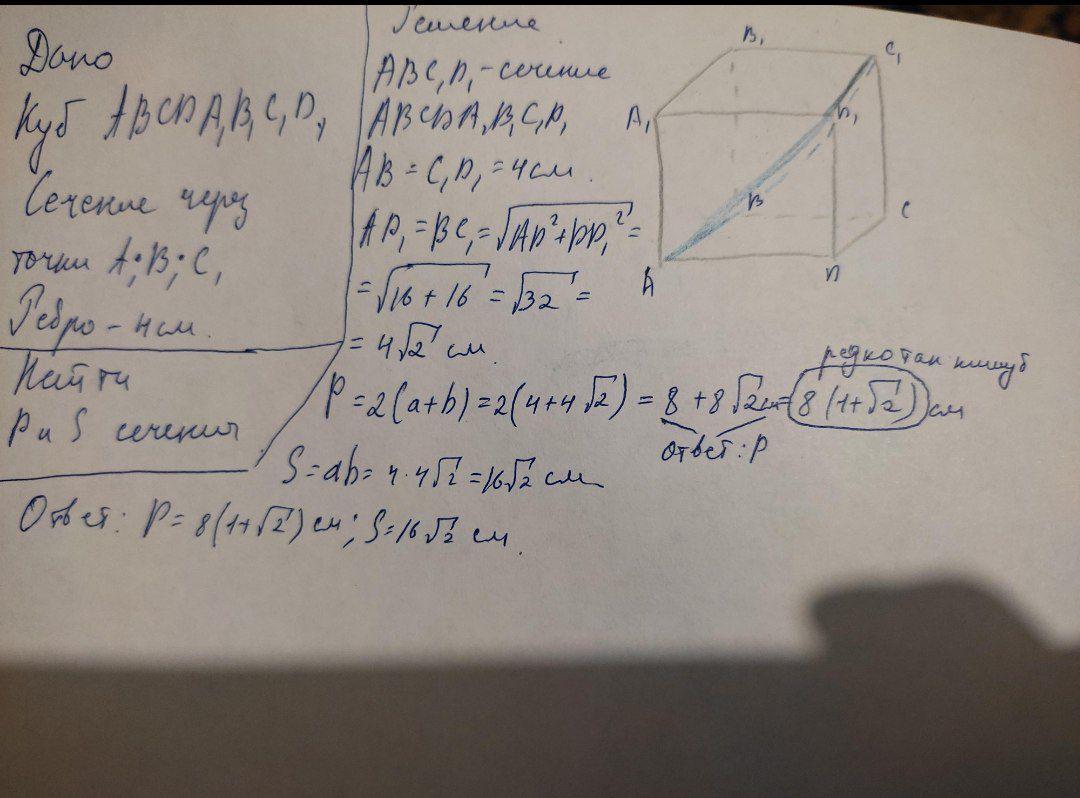 Дано
Куб ABCDA₁B₁C₁D₁
Сечение через
точки A; B; C₁
Ребро - 4 см.
Найти
P и S сечения
Решение
ABC₁D₁ - сечение
ABCDA₁B₁C₁D₁
AB = C₁D₁ = 4 см.
AD₁ = BC₁ = √(AD² + DD₁²) =
= √(16 + 16) = √32 =
= 4√2 см.
P = 2(a+b) = 2(4+4√2) = 8 + 8√2 см = 8(1+√2) см
редко так пишут
ответ: P
S = ab = 4 · 4√2 = 16√2 см
Ответ: P = 8(1+√2) см; S = 16√2 см.
B₁
C₁
A₁
D₁
B
C
A
D